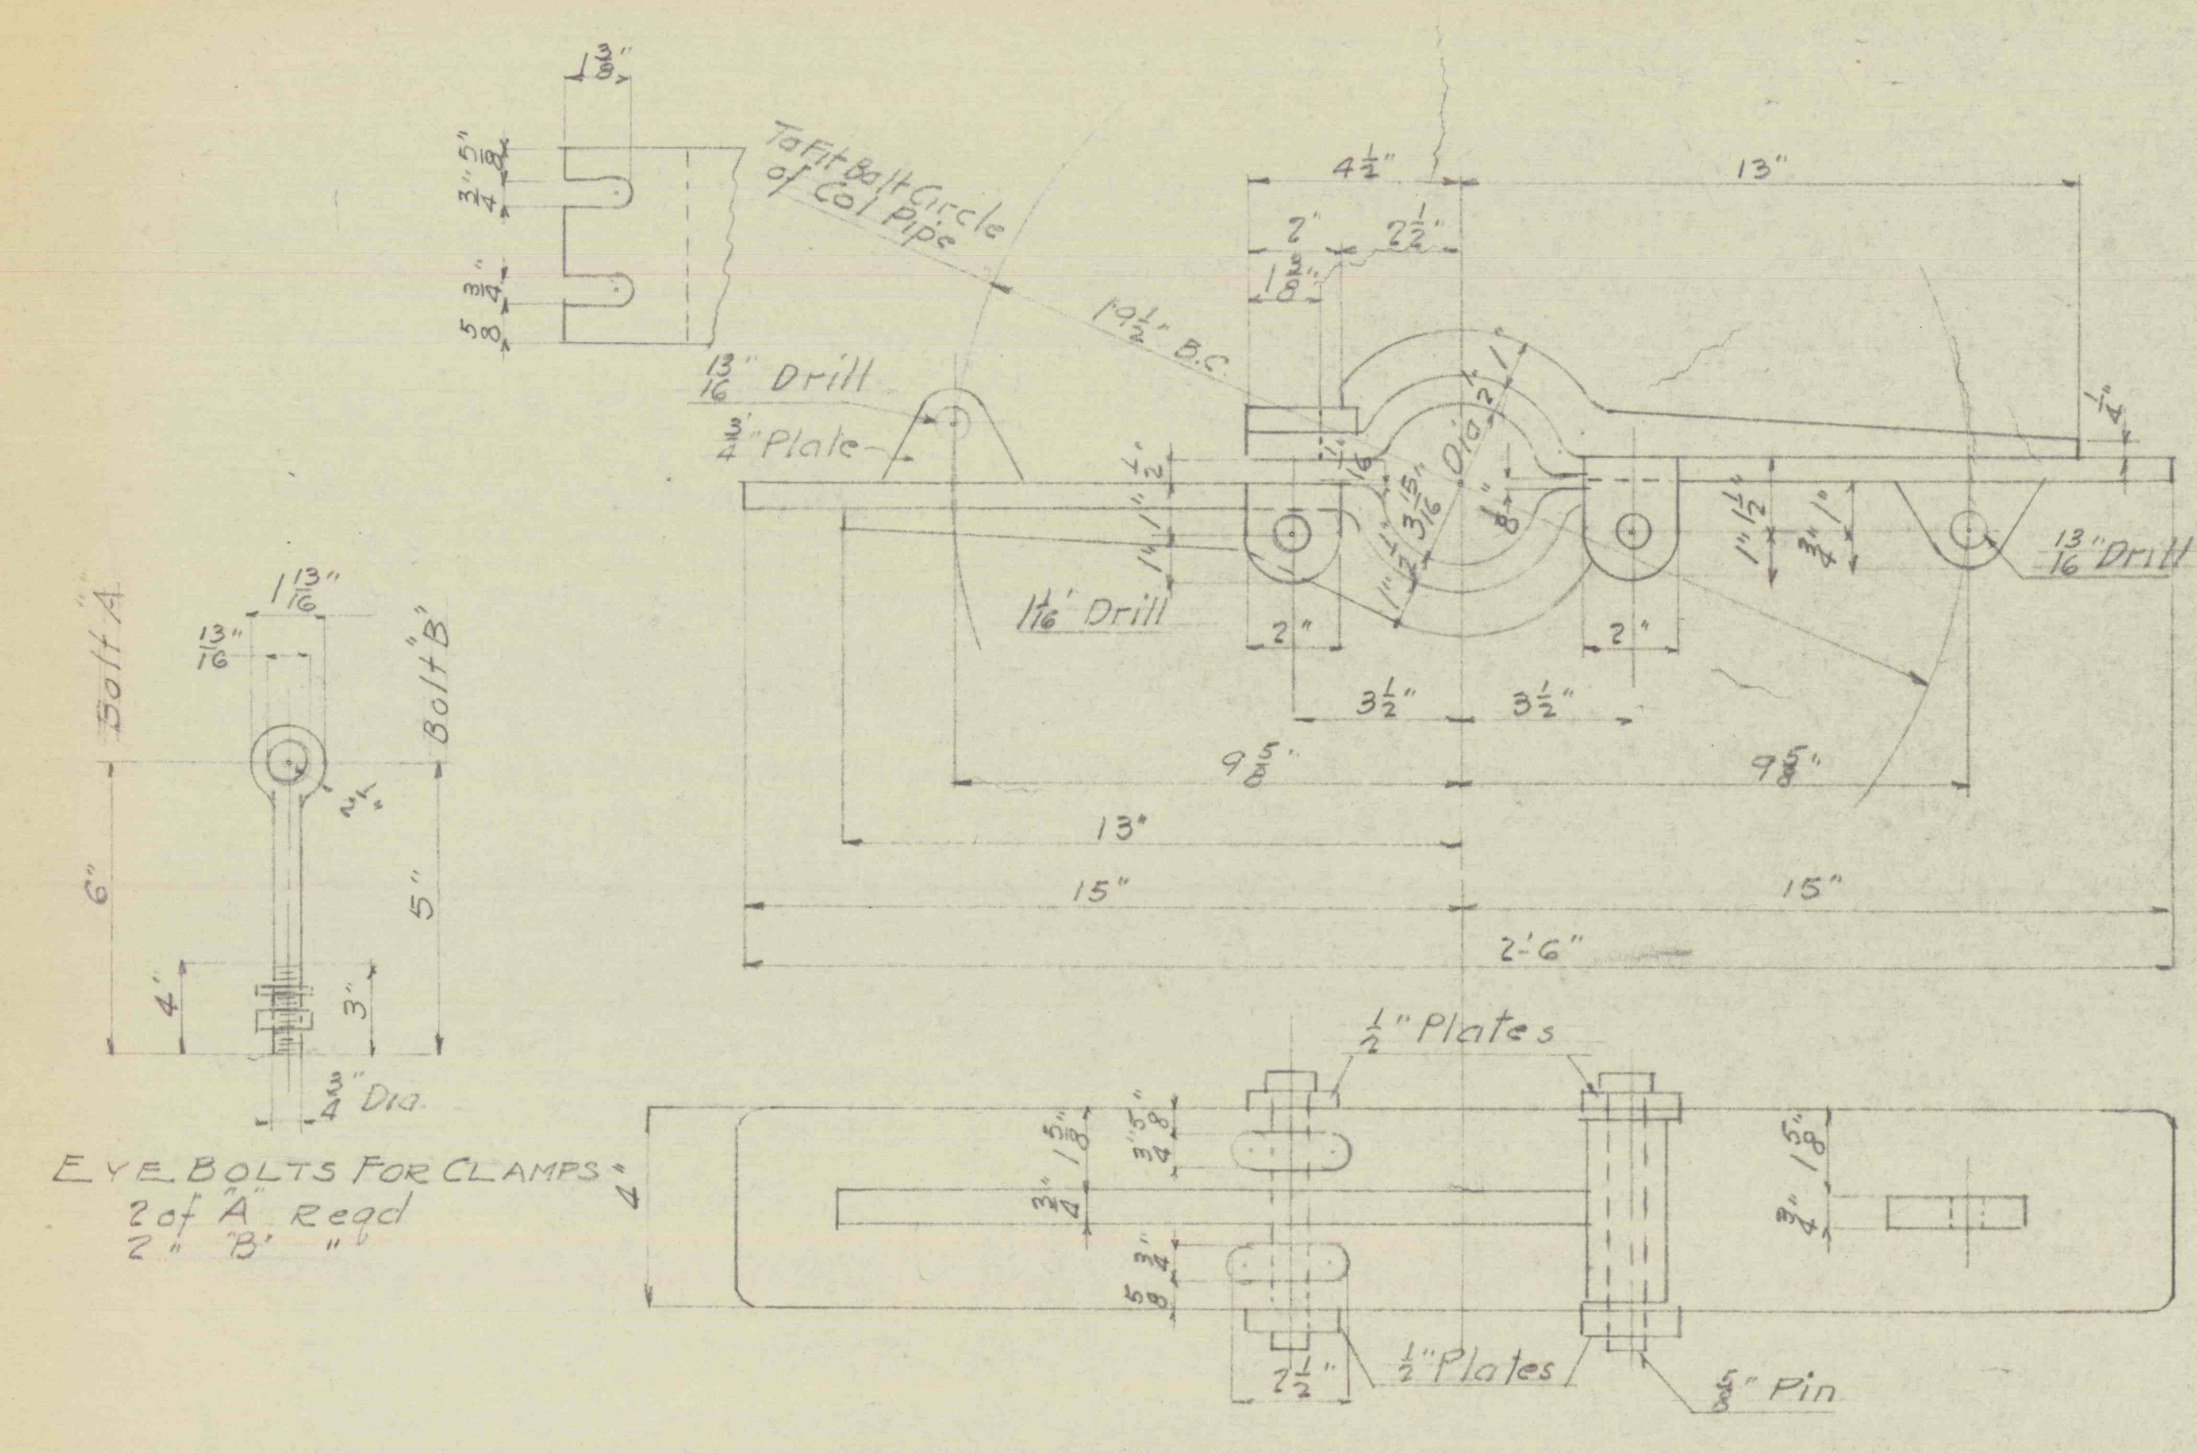 1 3/8"
5/8"
3/4"
3/4"
5/8
To Fit Bolt Circle
of Col Pipe
19 1/2" B.C.
4 1/2"
13"
2"
2 1/2"
1 3/8"
13/16" Drill
3/4" Plate
1/2"
1"
1"
1/16"
1"
1/2"
Dia
3 15/16"
1/2"
1"
1/8"
1/4"
1 1/2"
1"
1"
3/4"
13/16" Drill
1 1/16" Drill
2"
2"
3 1/2"
3 1/2"
9 5/8"
9 5/8"
13"
15"
15"
2'-6"
Bolt "A"
Bolt "B"
1 13/16"
13/16"
1/2"
6"
5"
4"
3"
3/4" Dia.
EYE BOLTS FOR CLAMPS
2 of "A" Reqd
2 " "B" "
4"
1/2" Plates
1 5/8"
3/4"
5/8"
3/4"
3/4"
5/8
1 5/8"
3/4"
2 1/2"
1/2" Plates
5/8" Pin